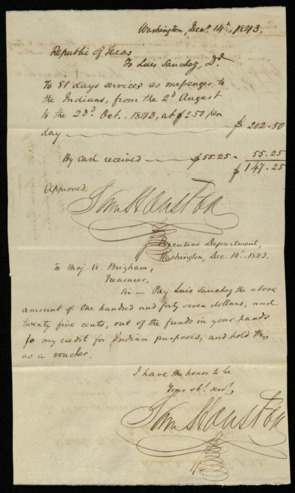 Washington, Dec. 14th, 1843.
Republic of Texas
To Luis Sanchez, Dr.
To 81 days services as messenger to
the Indians, from the 2d August
to the 23d Oct. 1843, at $2.50 per
day — $ 202.50
By cash received — $55.25 - 55.25
$ 147.25
Approved
Sam Houston
Executive Department,
Washington, Dec. 14th, 1843.
To Maj A. Brigham,
Treasurer,
Sir — Pay Luis Sanchez the above
amount of One hundred and forty seven dollars, and
twenty five cents, out of the funds in your hands
to my credit for Indian purposes, and hold this
as a voucher.
I have the honor to be
Your obt. servt.
Sam Houston